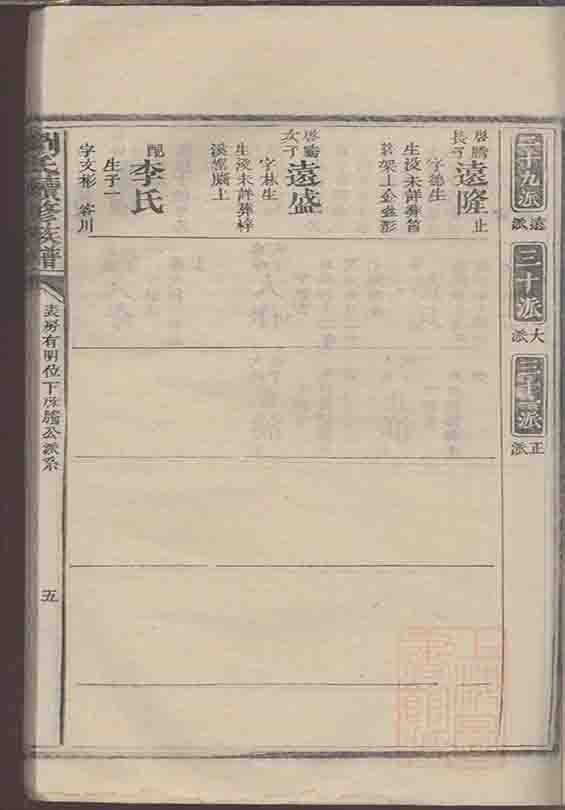 二十九派 遠派
三十派 大派
三十一派 正派
啓騰長子遠隆止
字德生
生没未詳葬
架上金盆形
啓騰
次子遠盛
字林生
生没未詳葬梓
溪窰廠上
配李氏
生子一
字文彬 容川
劉氏續修族譜
房有明位下啓騰公派系
五